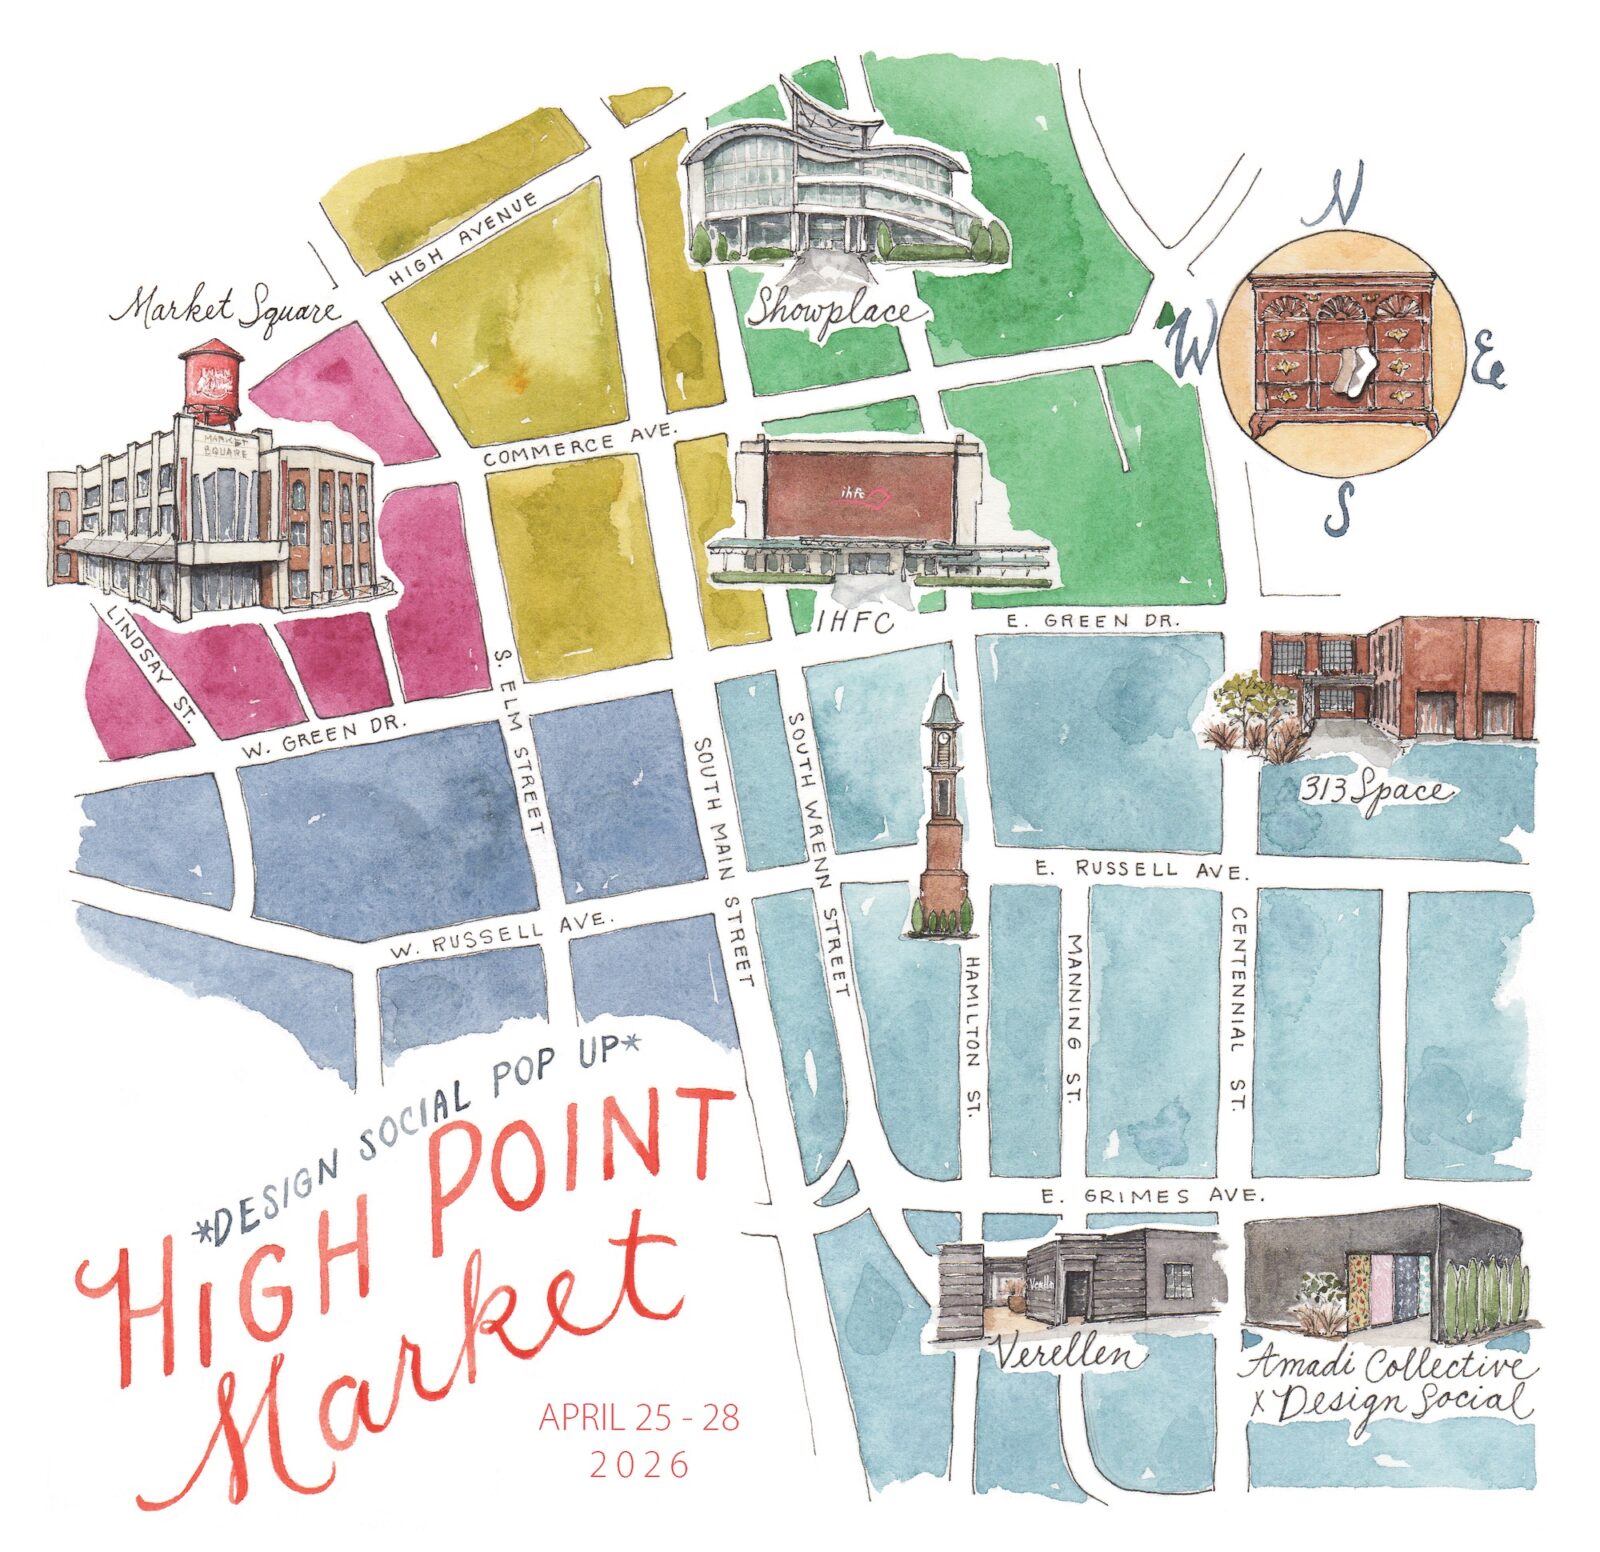 N
W
E
S
HIGH AVENUE
Market Square
MARKET
SQUARE
Showplace
COMMERCE AVE.
ihfc
IHFC
E. GREEN DR.
LINDSAY ST.
W. GREEN DR.
S. ELM STREET
SOUTH MAIN STREET
SOUTH WRENN STREET
313 Space
E. RUSSELL AVE.
W. RUSSELL AVE.
HAMILTON ST.
MANNING ST.
CENTENNIAL ST.
E. GRIMES AVE.
Verellen
Verellen
Amadi Collective
x Design Social
*DESIGN SOCIAL POP UP*
HIGH POINT
Market
APRIL 25 - 28
2026